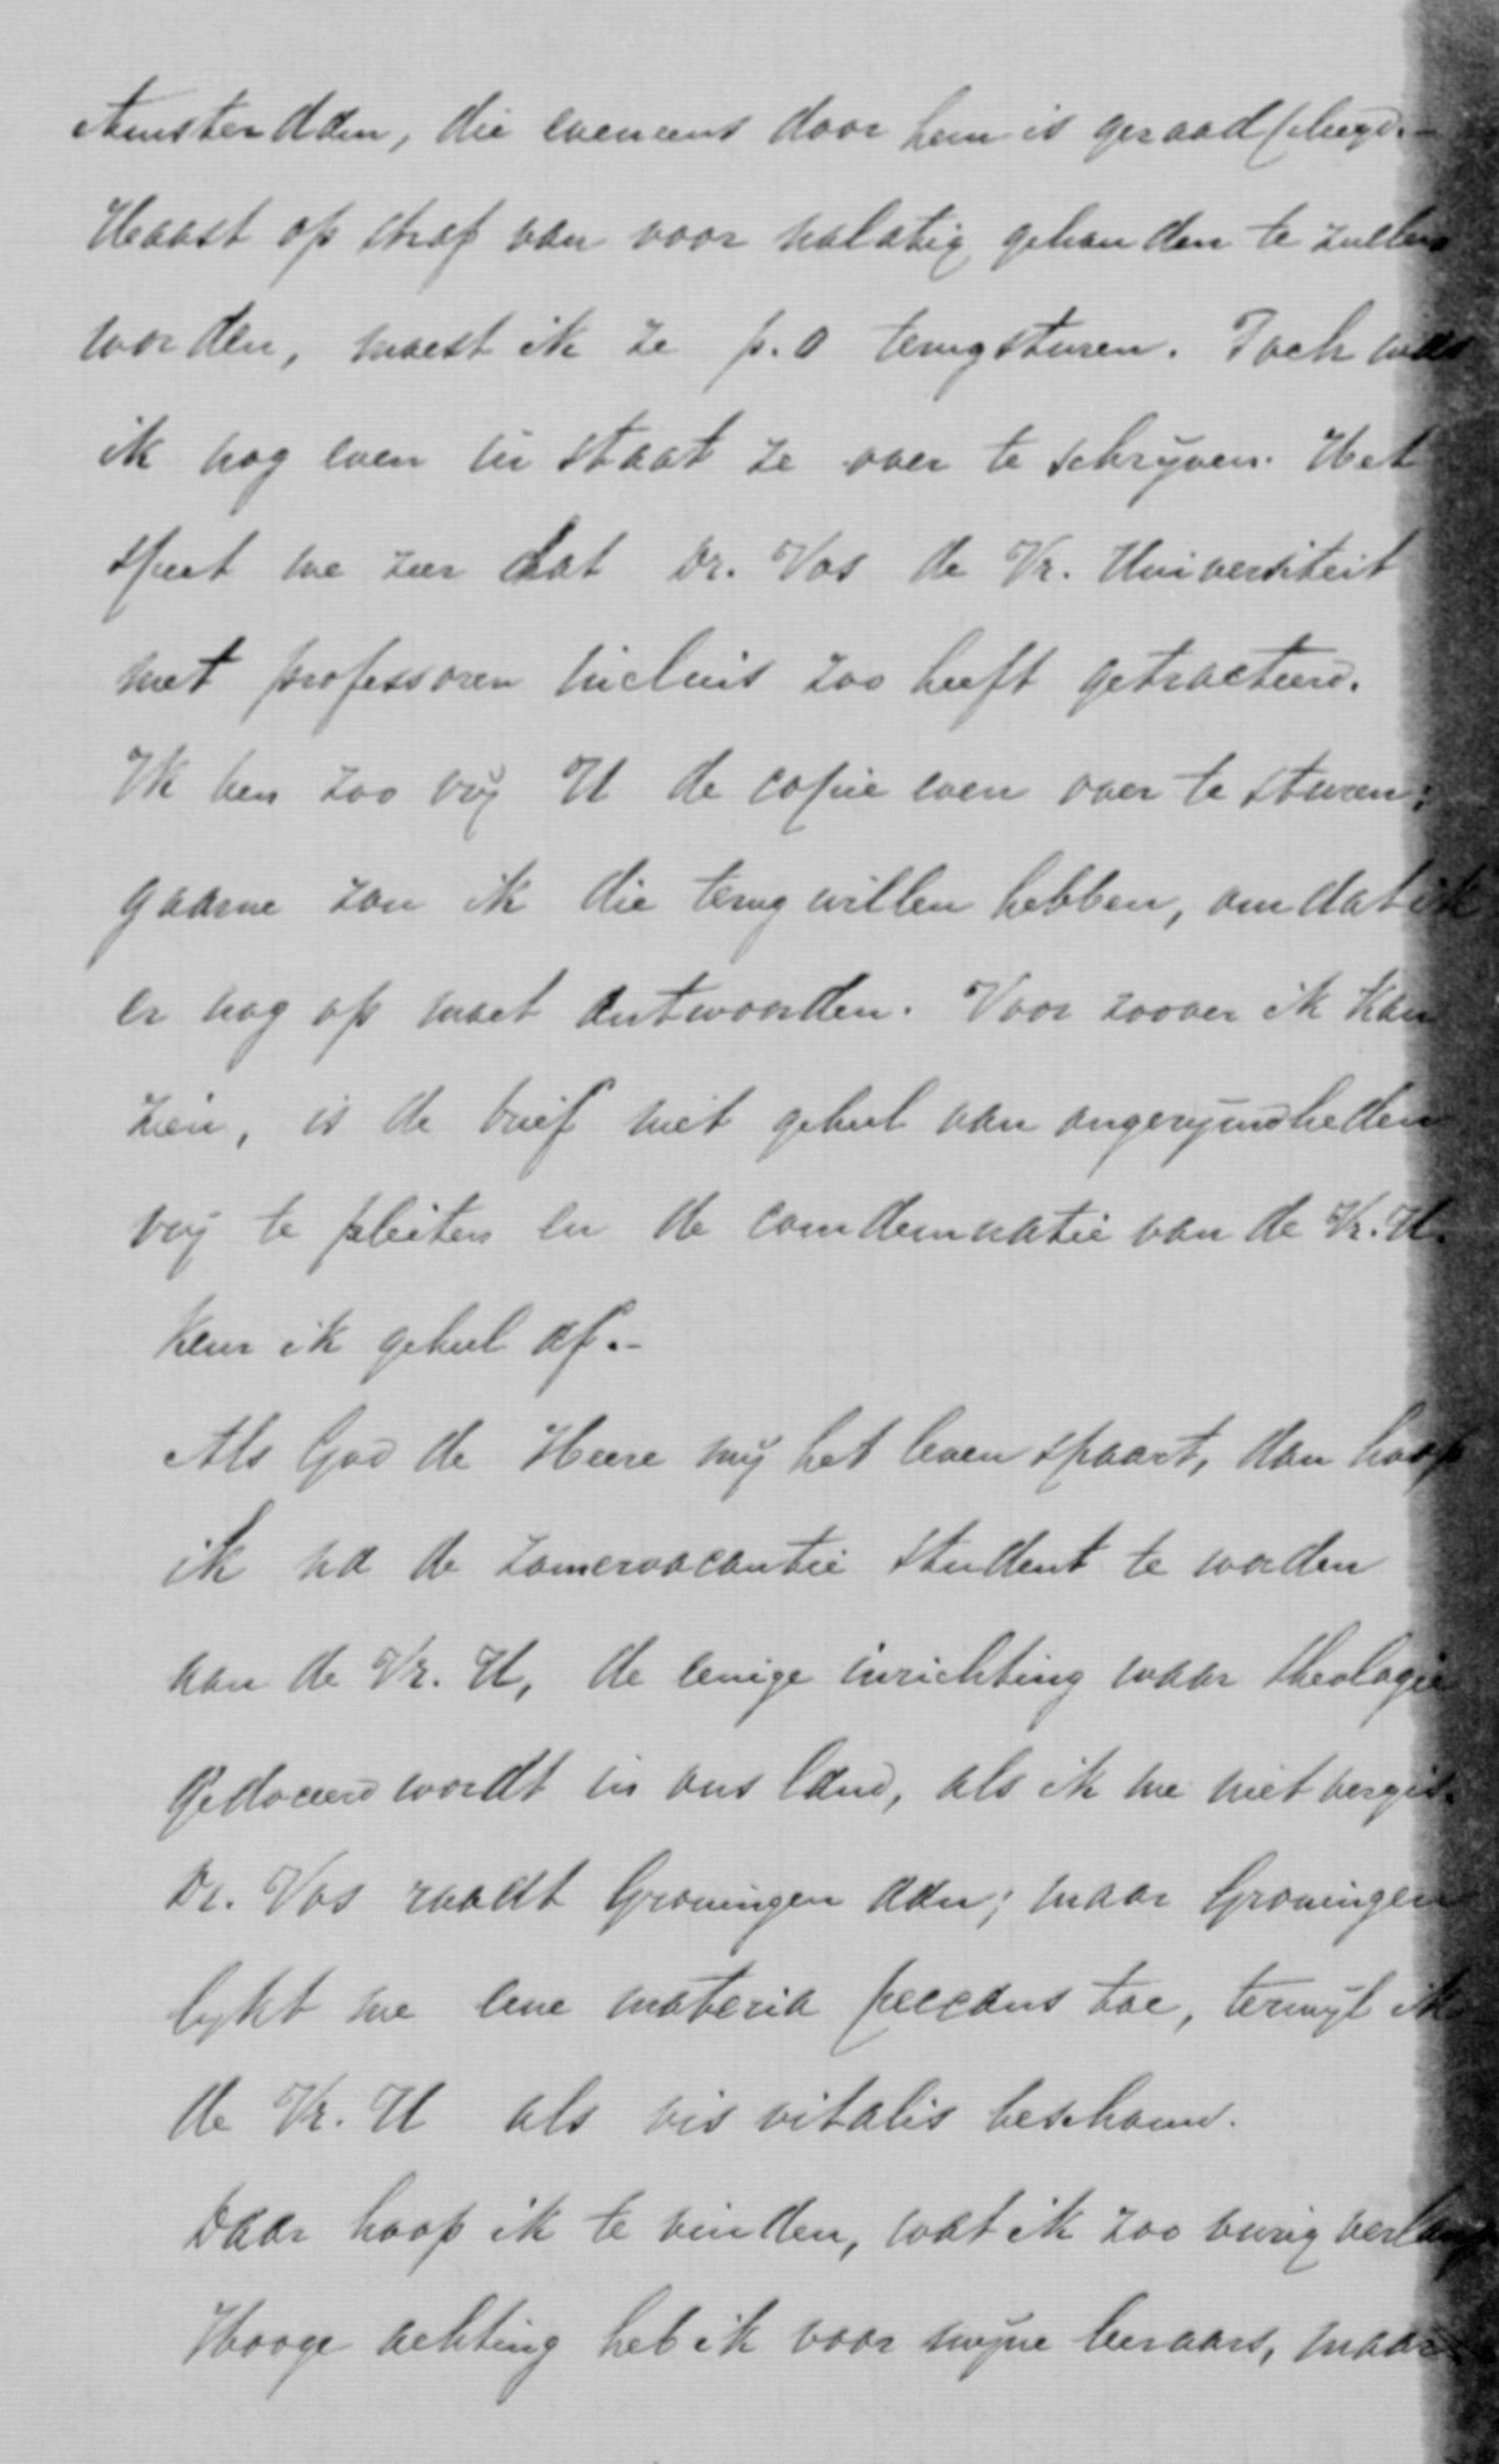 Amsterdam, die eveneens door hem is geraadpleegd.-
Haast op straf van voor nalatig gehouden te zullen
worden, moest ik ze p.o terugsturen. Toch was
ik nog even in staat ze over te schrijven. Het
speet me zeer dat Dr. Vos de Vr. Universiteit
met professoren incluis zoo heeft getracteerd.
Ik ben zoo vrij U de copie even over te sturen;
gaarne zou ik die terug willen hebben, omdat ik
er nog op moet antwoorden. Voor zoover ik kan
zien, is de brief niet geheel van ongerijmdheden
vrij te pleiten en de comdemnatie van de Vr. U.
keur ik geheel af.-
Als God de Heere mij het leven spaart, dan hoop
ik na de zomervacantie student te worden
aan de Vr. U, de eenige inrichting waar theologie
gedoceerd wordt in ons land, als ik me niet vergis.
Dr. Vos raadt Groningen aan; maar Groningen
lijkt me eene materia peccans toe, terwijl ik
de Vr. U als vis vitalis beschouw.
Daar hoop ik te vinden, wat ik zoo vurig verlang
Hooge achting heb ik voor mijne leeraars, maar